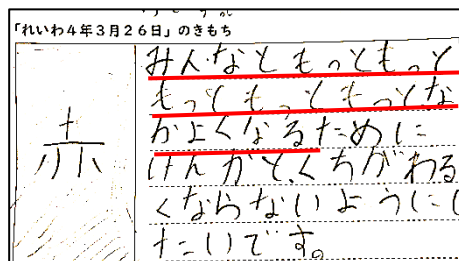 「れいわ４年３月２６日」のきもち
みんなともっともっと
もっともっともっとな
かよくなるために
けんかと、くちがわる
くならないようにし
たいです。
赤